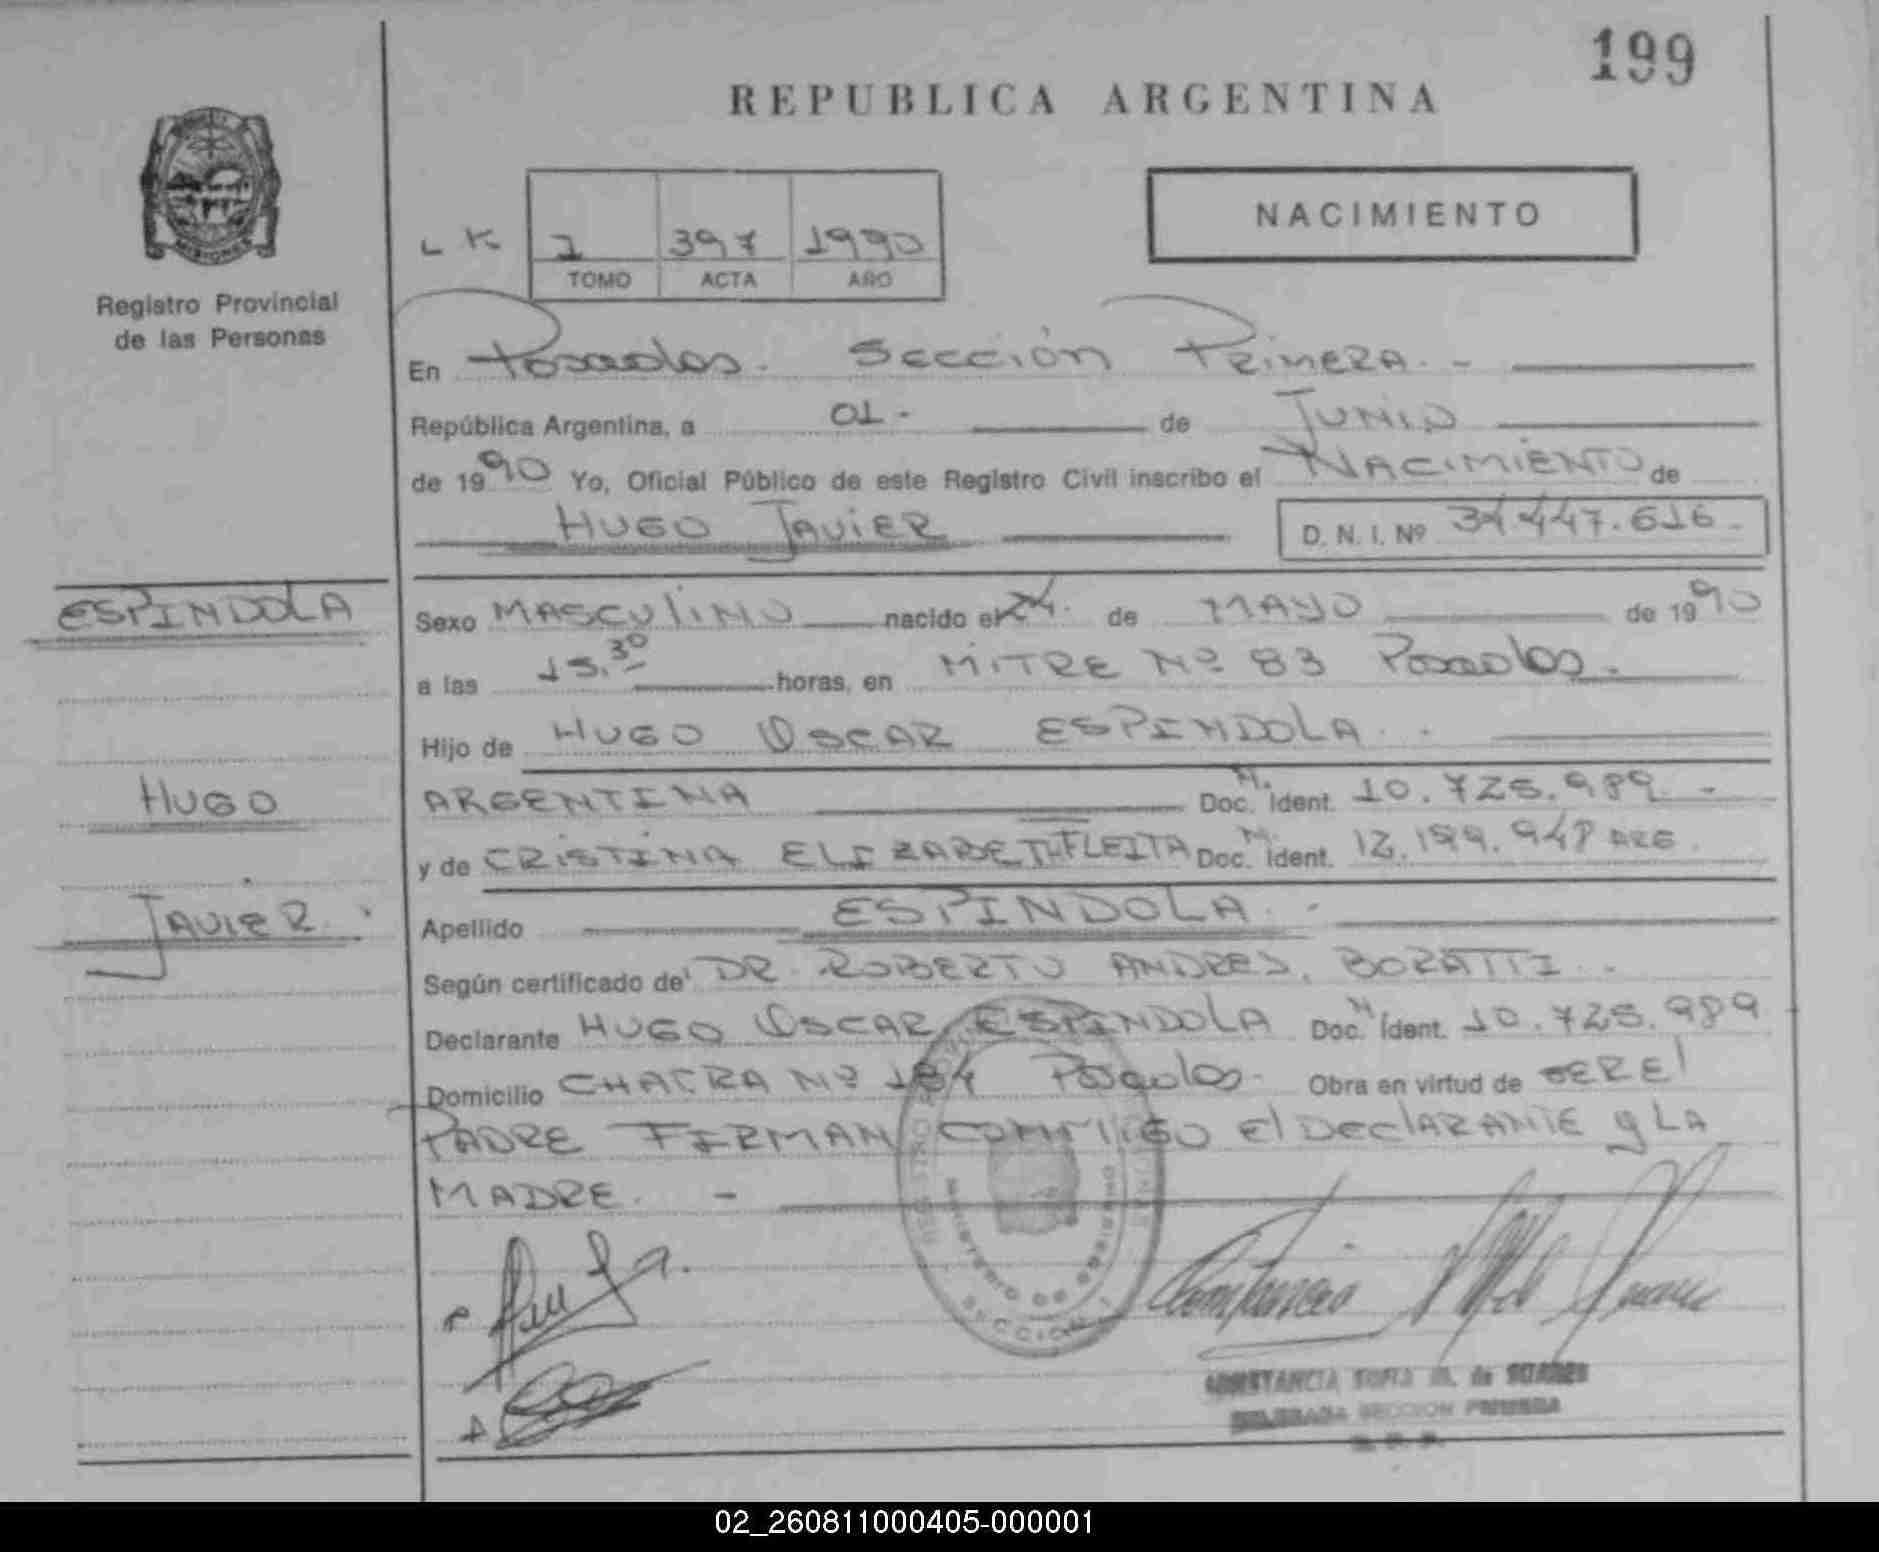 199
REPUBLICA ARGENTINA
NACIMIENTO
L K 1 397 1990
TOMO ACTA AÑO
MISIONES
Registro Provincial
de las Personas
En Posadas. Sección Primera. -
República Argentina, a 01- de Junio
de 1990 Yo, Oficial Público de este Registro Civil inscribo el NACIMIENTO de
HUGO JAVIER D. N. I. Nº 34.447.616.-
ESPINDOLA
HUGO
JAVIER.
Sexo MASCULINO nacido el de MAYO de 1990
a las 15.30 horas, en MITRE Nº 83 Posadas.
Hijo de HUGO OSCAR ESPINDOLA. -
ARGENTINA Doc. Ident. M. 10.725.989 -
y de CRISTINA ELIZABETH FLEITA Doc. Ident. M. 12.199.948 ARG.
Apellido ESPINDOLA. -
Según certificado de DR. ROBERTO ANDRES, BORATTI. -
Declarante HUGO OSCAR ESPINDOLA Doc. Ident. M 10.725.989
Domicilio CHACRA Nº 184 Posadas. Obra en virtud de SER El
PADRE FIRMAN CONMIGO el DEClARANTE y LA
MADRE. -
CONSTANCIA SOFIA M. de SUAREZ
DELEGADA SECCION PRIMERA
R. P. P.
02_260811000405-000001